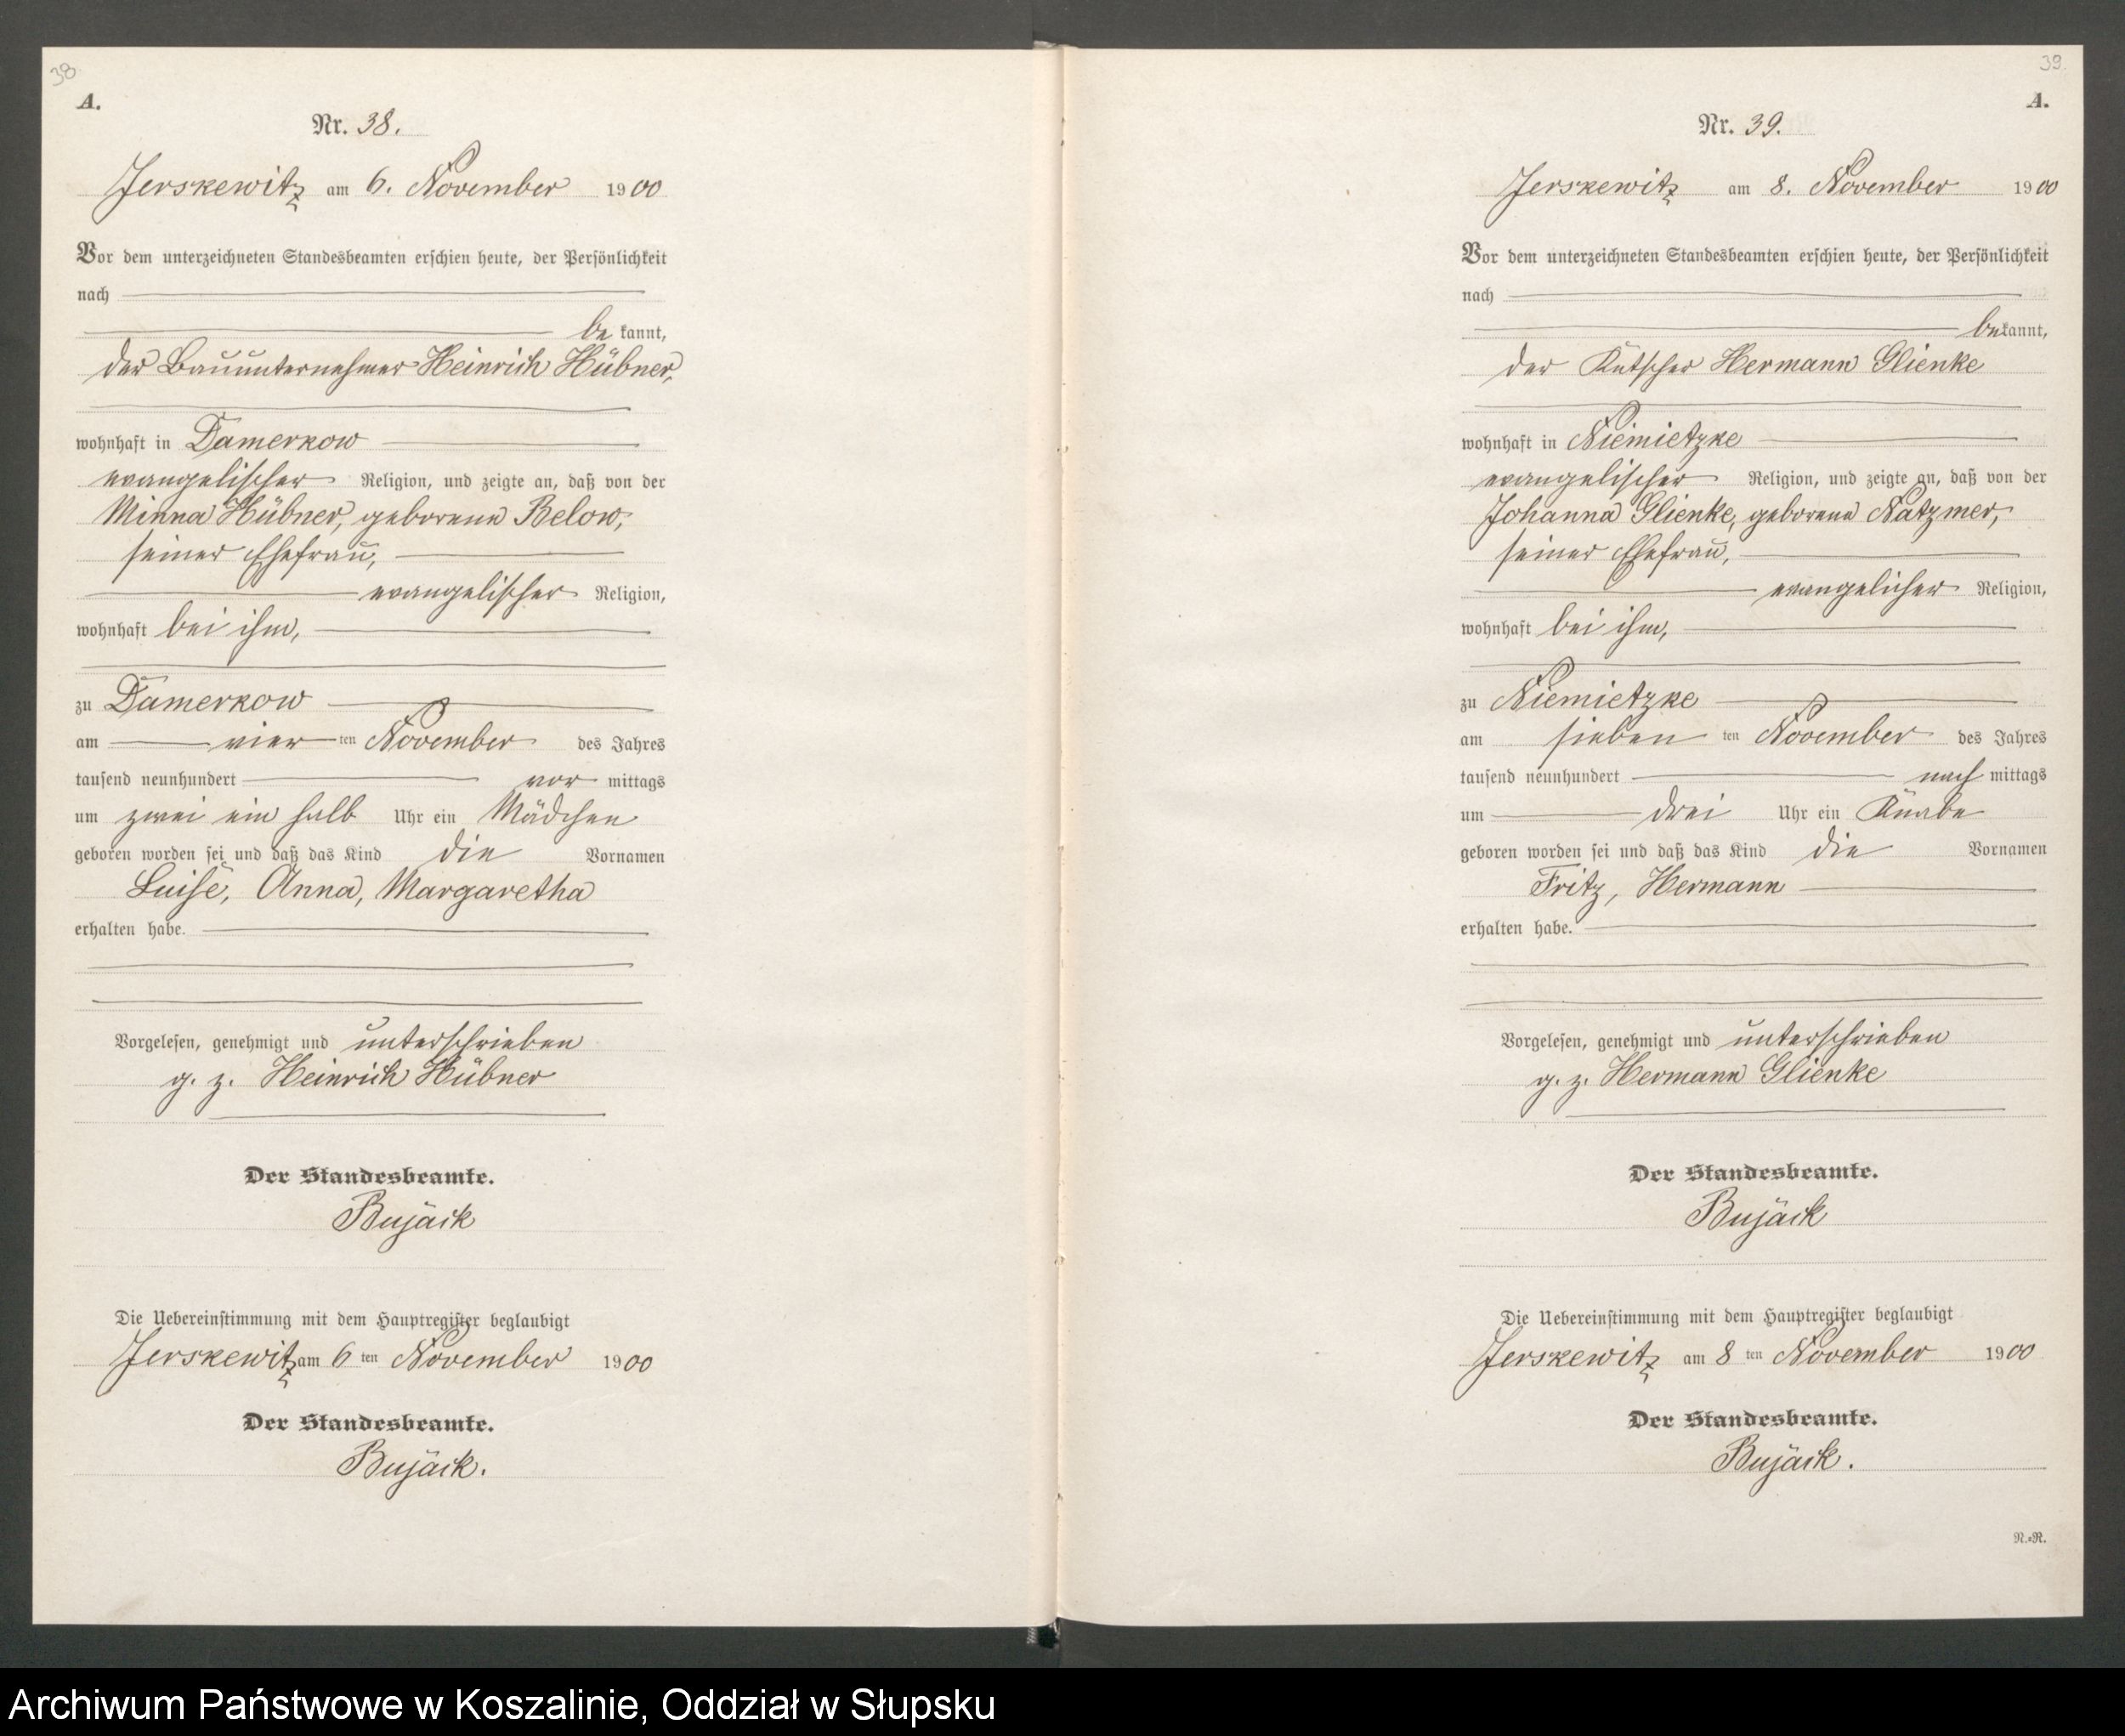 38.
A.
Nr. 38.
Jerskewitz am 6. November 1900
Vor dem unterzeichneten Standesbeamten erschien heute, der Persönlichkeit
nach
be kannt,
der Bauunternehmer Heinrich Hübner,
wohnhaft in Damerkow
evangelischer Religion, und zeigte an, daß von der
Minna Hübner, geborene Below,
seiner Ehefrau,
evangelischer Religion,
wohnhaft bei ihm,
zu Damerkow
am vier ten November des Jahres
tausend neunhundert vor mittags
um zwei ein halb Uhr ein Mädchen
geboren worden sei und daß das Kind die Vornamen
Luise, Anna, Margaretha
erhalten habe.
Vorgelesen, genehmigt und unterschrieben
g. z. Heinrich Hübner
Der Standesbeamte.
Bujäck
Die Uebereinstimmung mit dem Hauptregister beglaubigt
Jerskewitz am 6 ten November 1900
Der Standesbeamte.
Bujäck.
39.
A.
Nr. 39.
Jerskewitz am 8. November 1900
Vor dem unterzeichneten Standesbeamten erschien heute, der Persönlichkeit
nach
bekannt,
der Kutscher Hermann Glienke
wohnhaft in Niemietzke
evangelischer Religion, und zeigte an, daß von der
Johanna Glienke, geborene Natzmer,
seiner Ehefrau,
evangelicher Religion,
wohnhaft bei ihm,
zu Niemietzke
am sieben ten November des Jahres
tausend neunhundert nach mittags
um drei Uhr ein Knabe
geboren worden sei und daß das Kind die Vornamen
Fritz, Hermann
erhalten habe.
Vorgelesen, genehmigt und unterschrieben
g. z. Hermann Glienke
Der Standesbeamte.
Bujäck
Die Uebereinstimmung mit dem Hauptregister beglaubigt
Jerskewitz am 8 ten November 1900
Der Standesbeamte.
Bujäck.
N.=R.
Archiwum Państwowe w Koszalinie, Oddział w Słupsku